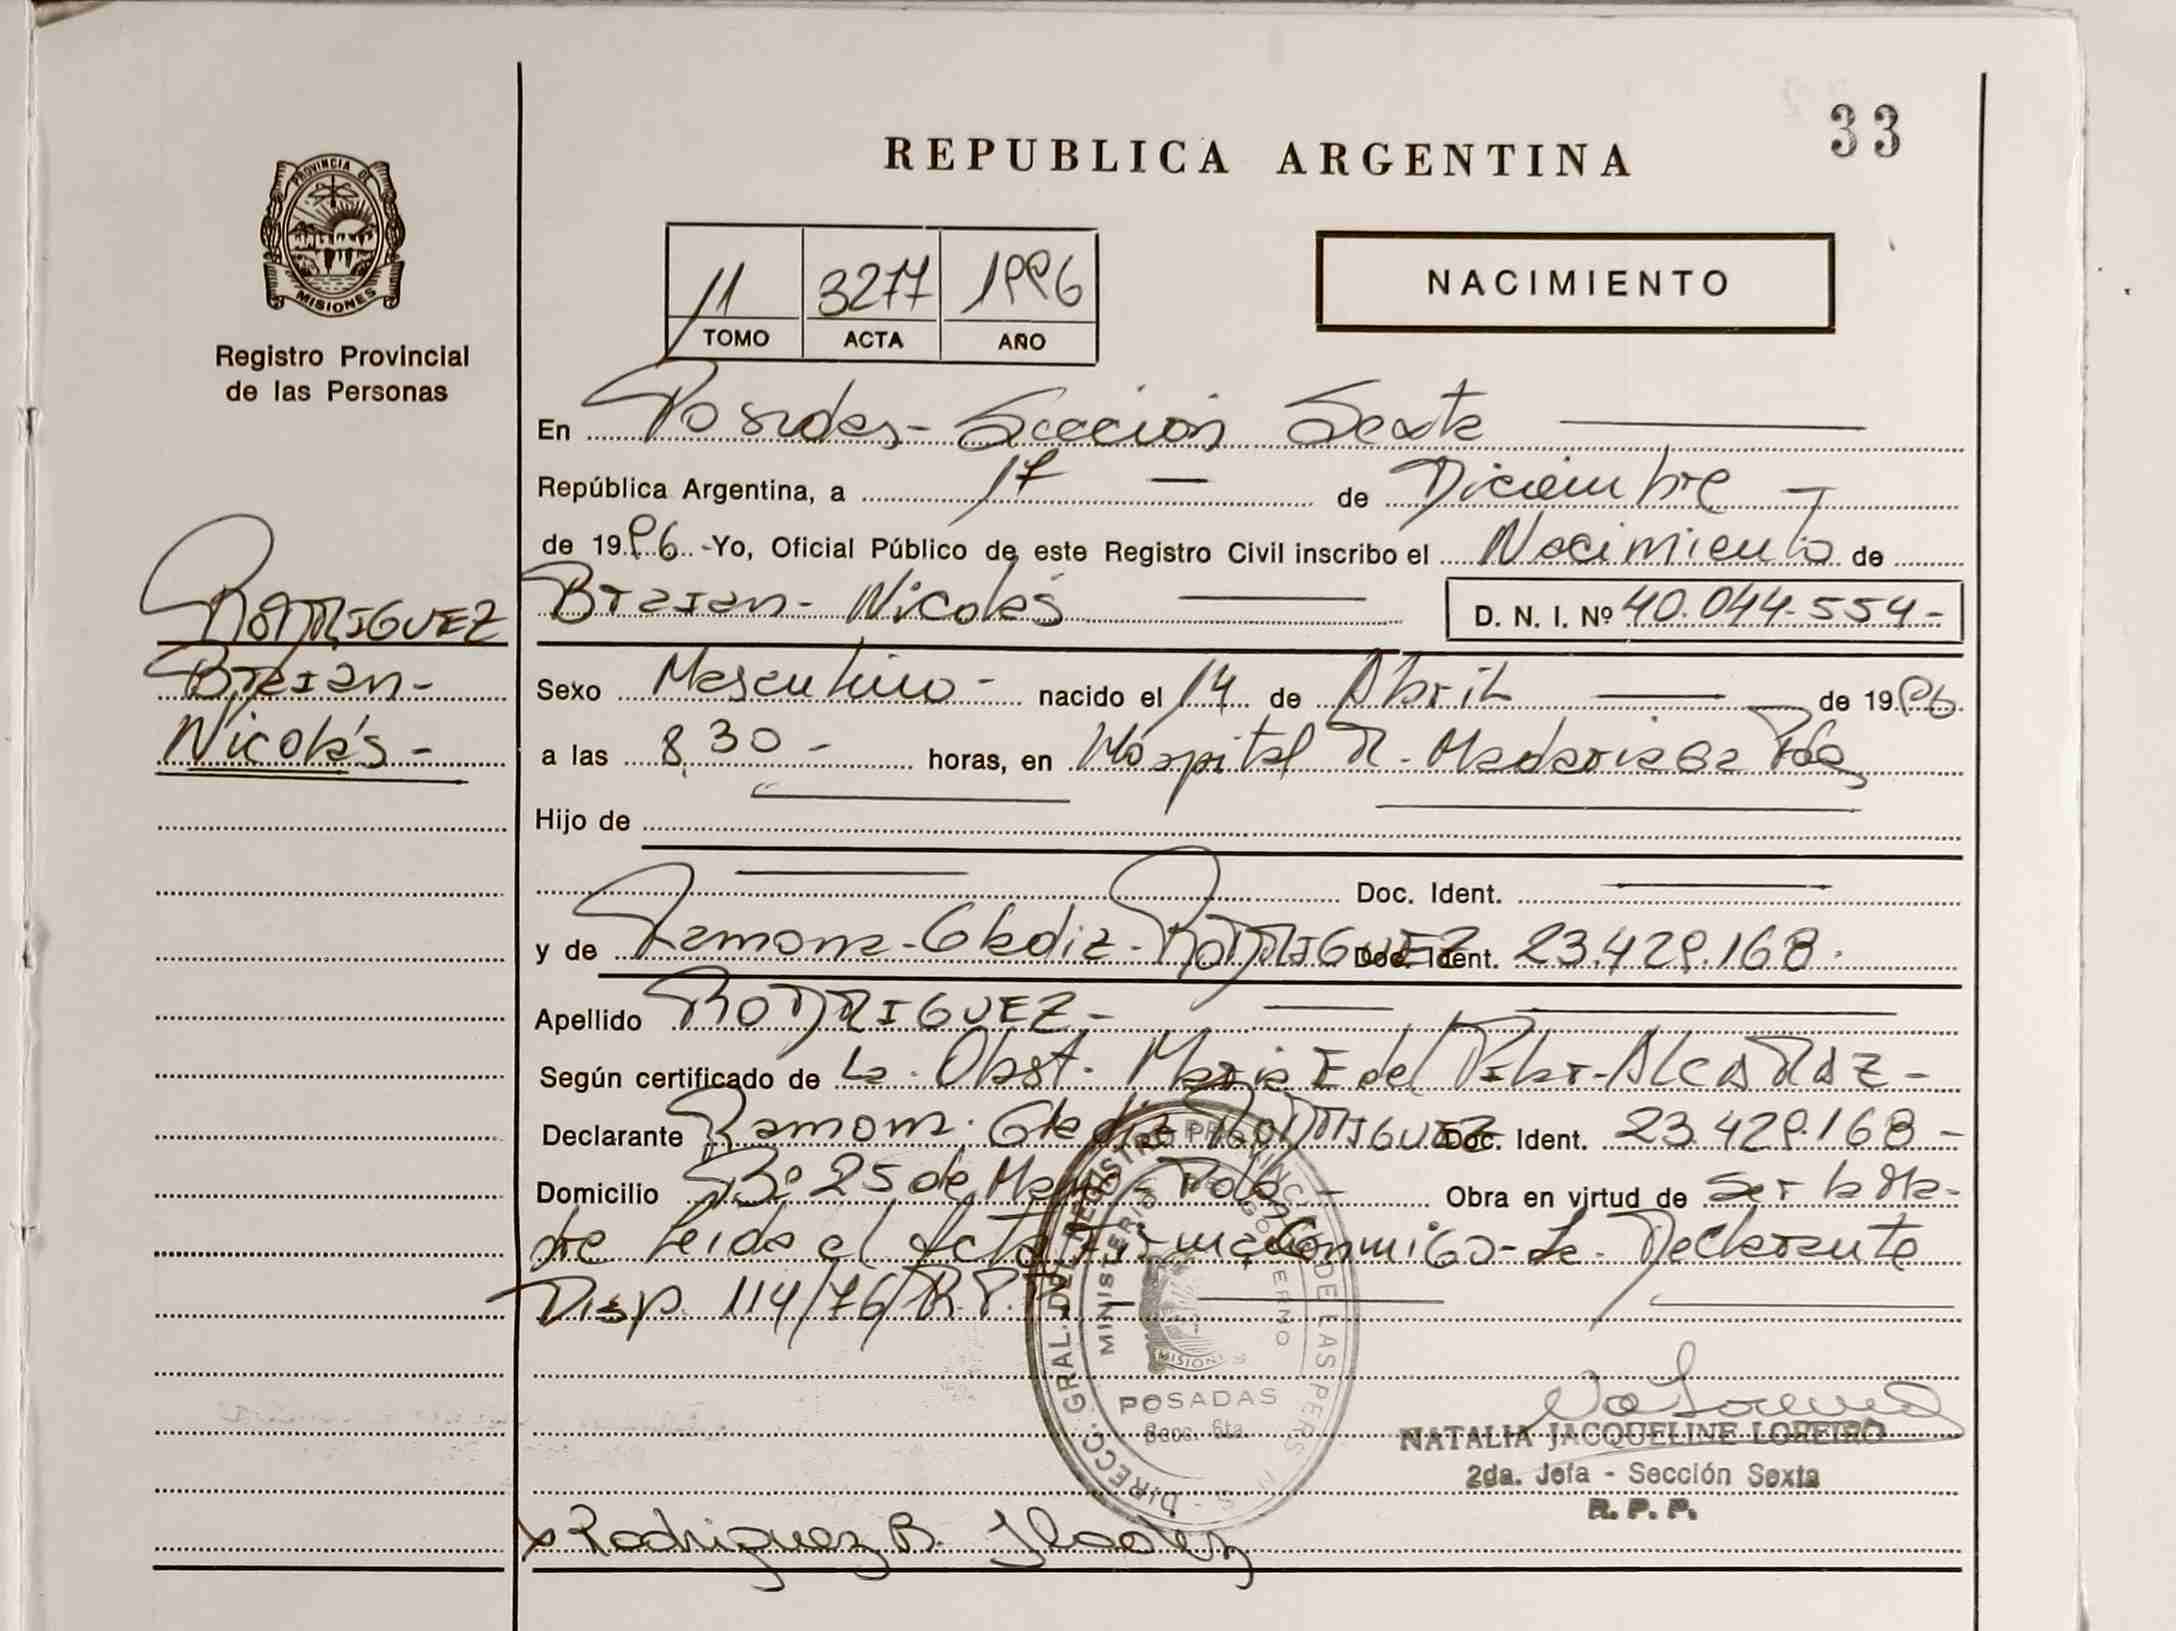 33
REPUBLICA ARGENTINA
PROVINCIA DE
MISIONES
Registro Provincial
de las Personas
11 3277 1996
TOMO ACTA AÑO
NACIMIENTO
En Posadas - Sección Sexta
República Argentina, a 17 — de Diciembre —
de 1996 - Yo, Oficial Público de este Registro Civil inscribo el Nacimiento de
Braian - Nicolás — D. N. I. Nº 40.044.554 -
RODRIGUEZ
Braian -
Nicolás -
Sexo Masculino - nacido el 14 de Abril — de 1996
a las 8,30 - horas, en Hospital R. Madariaga Pdas
Hijo de
Doc. Ident.
y de Ramona - Gladiz - RODRIGUEZ Doc. Ident. 23.429.168.
Apellido RODRIGUEZ -
Según certificado de la Obst. Maria E del Pilar - ALCARAZ -
Declarante Ramona. Gladiz RODRIGUEZ Doc. Ident. 23.429.168 -
Domicilio Bº 25 de Mayo - Pdas - Obra en virtud de ser la Ma-
dre Leida el Acta Firma Conmigo - la Declarante
Disp. 114/76/R.P.P. —
DIRECC. GRAL. DEL REGISTRO PROVINCIAL DE LAS PERS
MINISTERIO GOBIERNO
MISIONES
POSADAS
Secc. 6ta.
NATALIA JACQUELINE LOREIRO
2da. Jefa - Sección Sexta
R. P. P.
x Rodriguez R.